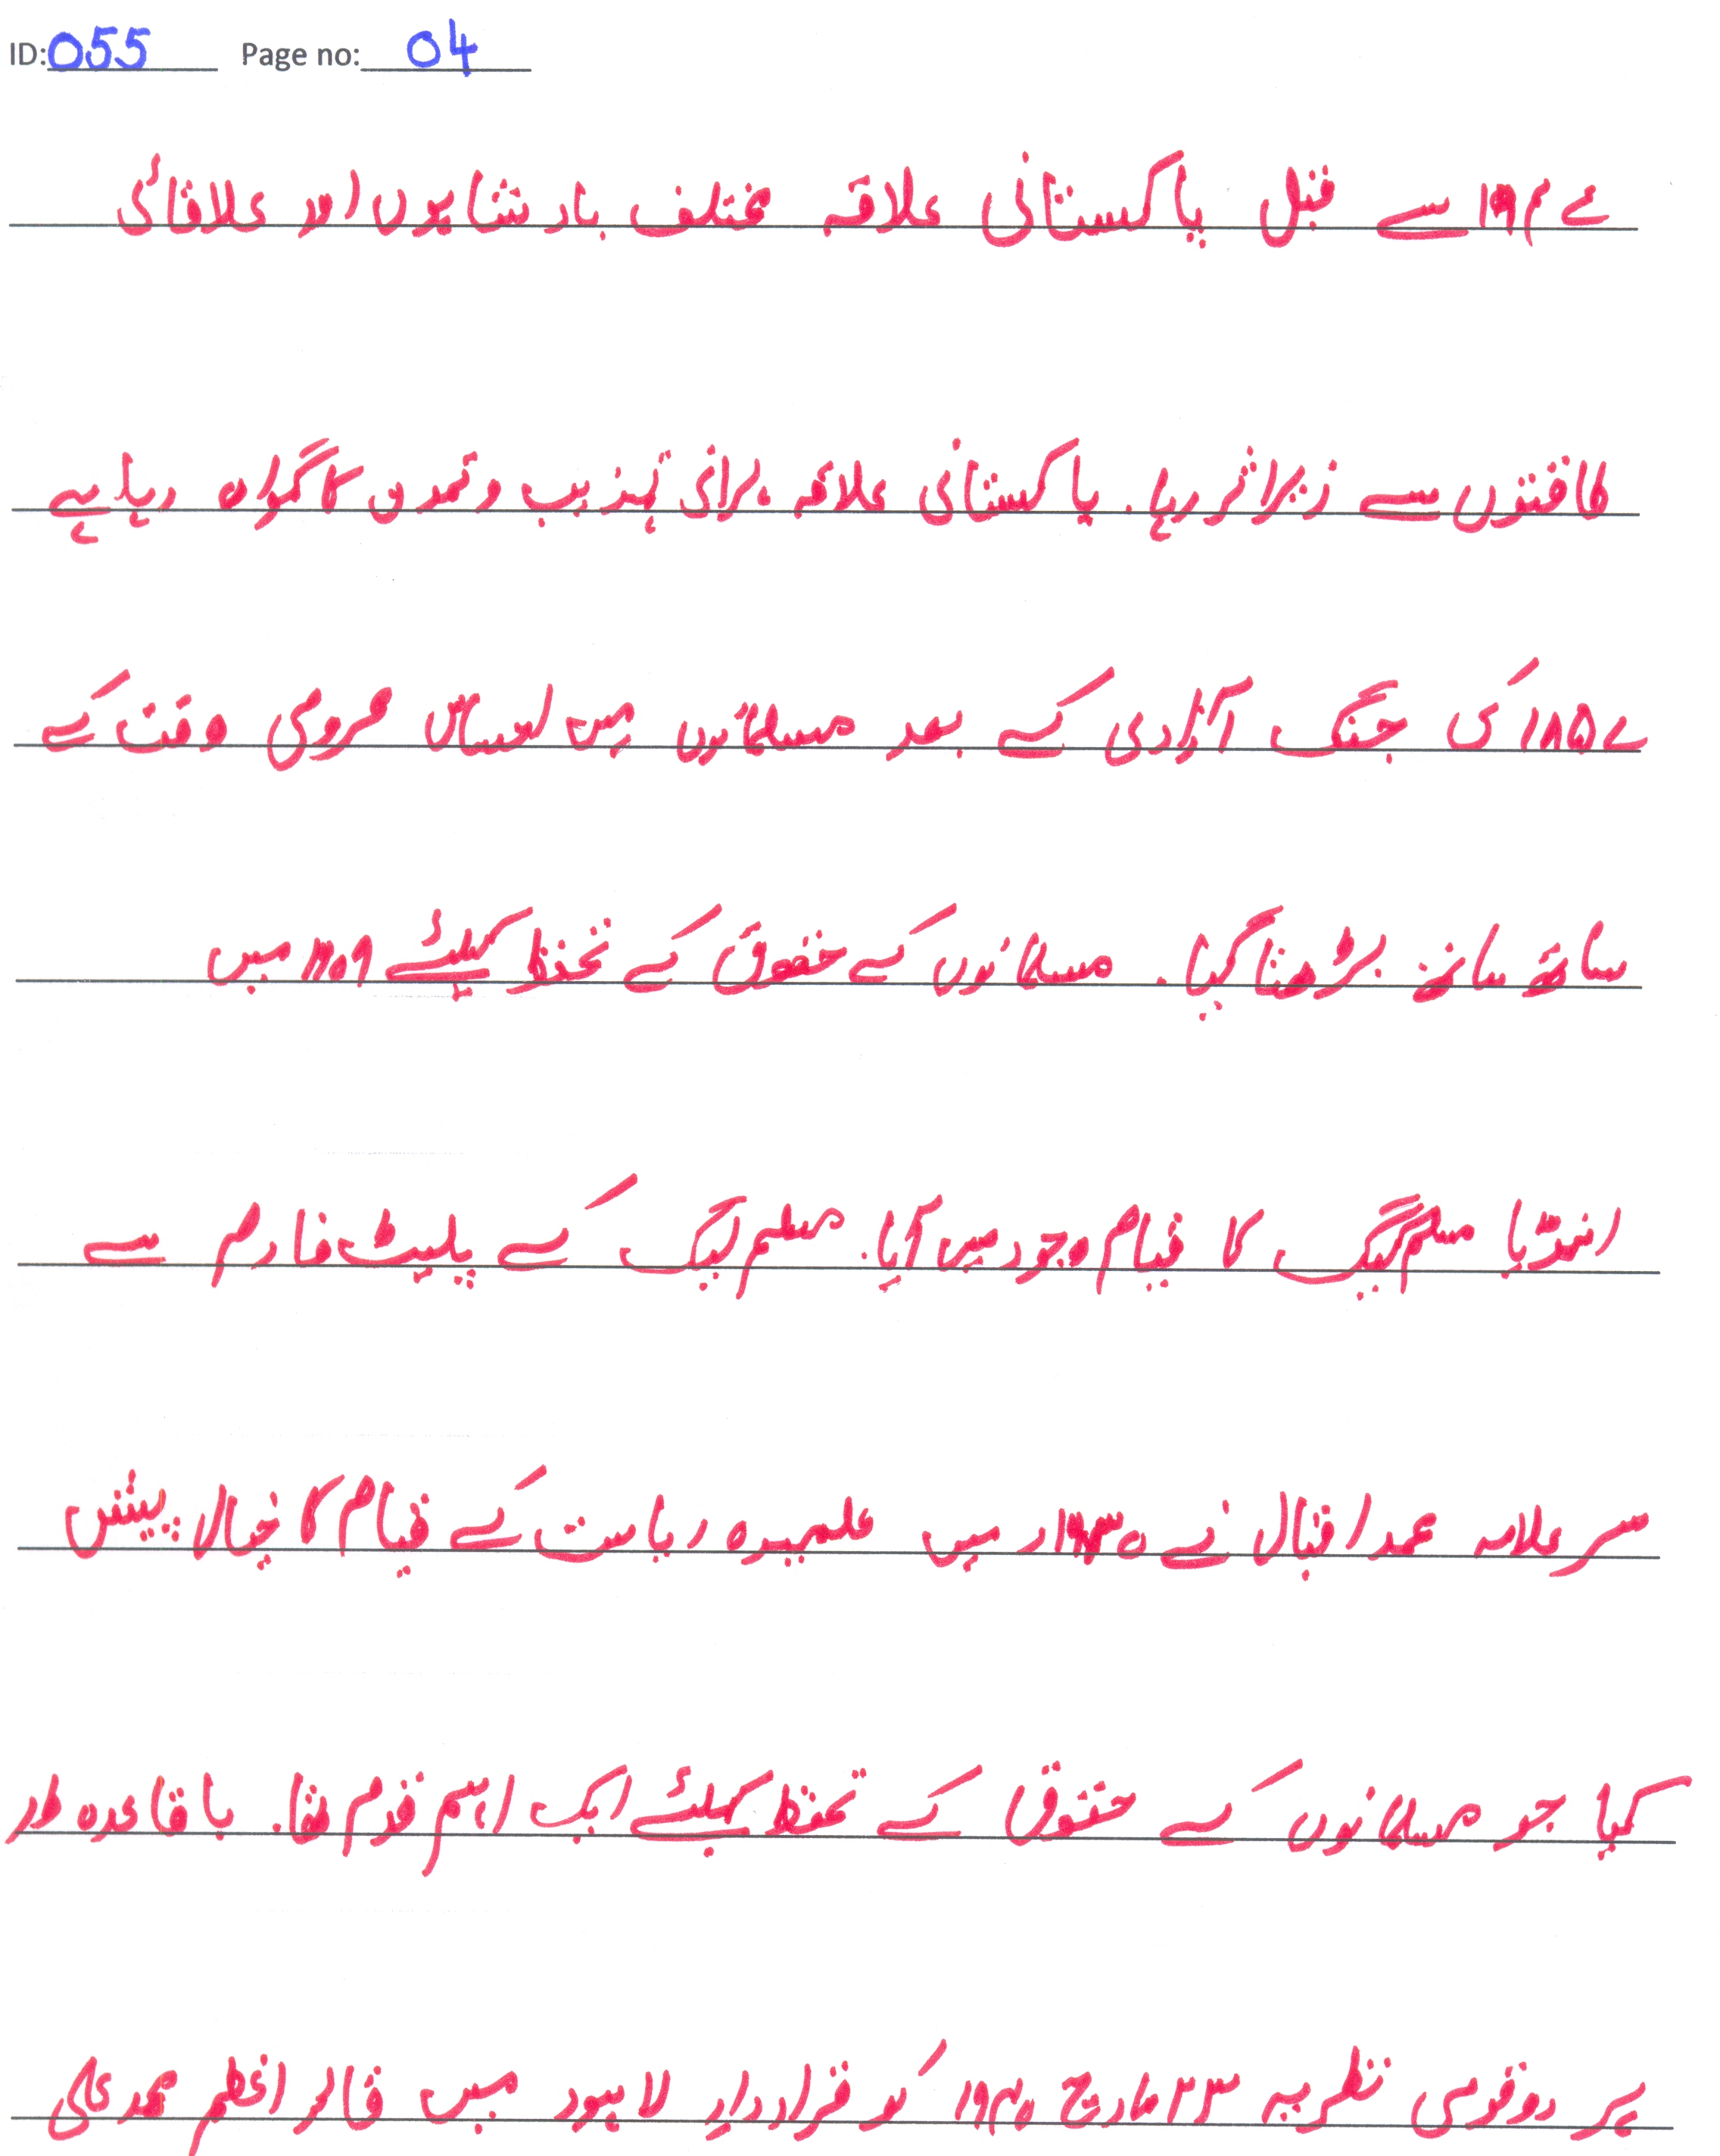 ID: 055 Page no: 04
۱۹۴۷ سے قبل پاکستانی علاقہ مختلف بادشاہوں اور علاقائی
طاقتوں سے زیراثر رہا۔ پاکستانی علاقہ پرانی تہذیب وتمدن کا گواہ رہا ہے
۱۸۵۷ کی جنگ آزادی کے بعد مسلمانوں میں احساس محرومی وقت کے
ساتھ ساتھ بڑھتا گیا۔ مسلمانوں کے حقوق کے تحفظ کیلئے ۱۹۰۶ میں
انڈیا مسلم لیگ کا قیام وجود میں آیا۔ مسلم لیگ کے پلیٹ فارم سے
سر علامہ محمد اقبال نے ۱۹۳۰ میں علہیدہ ریاست کے قیام کا خیال پیش
کیا جو مسلمانوں کے حقوق کے تحفظ کیلئے ایک اہم قدم تھا۔ باقاعدہ طور
پر دوقومی نظریہ ۲۳ مارچ ۱۹۴۰ کو قرارداد لاہور میں قائد اعظم محمد علی